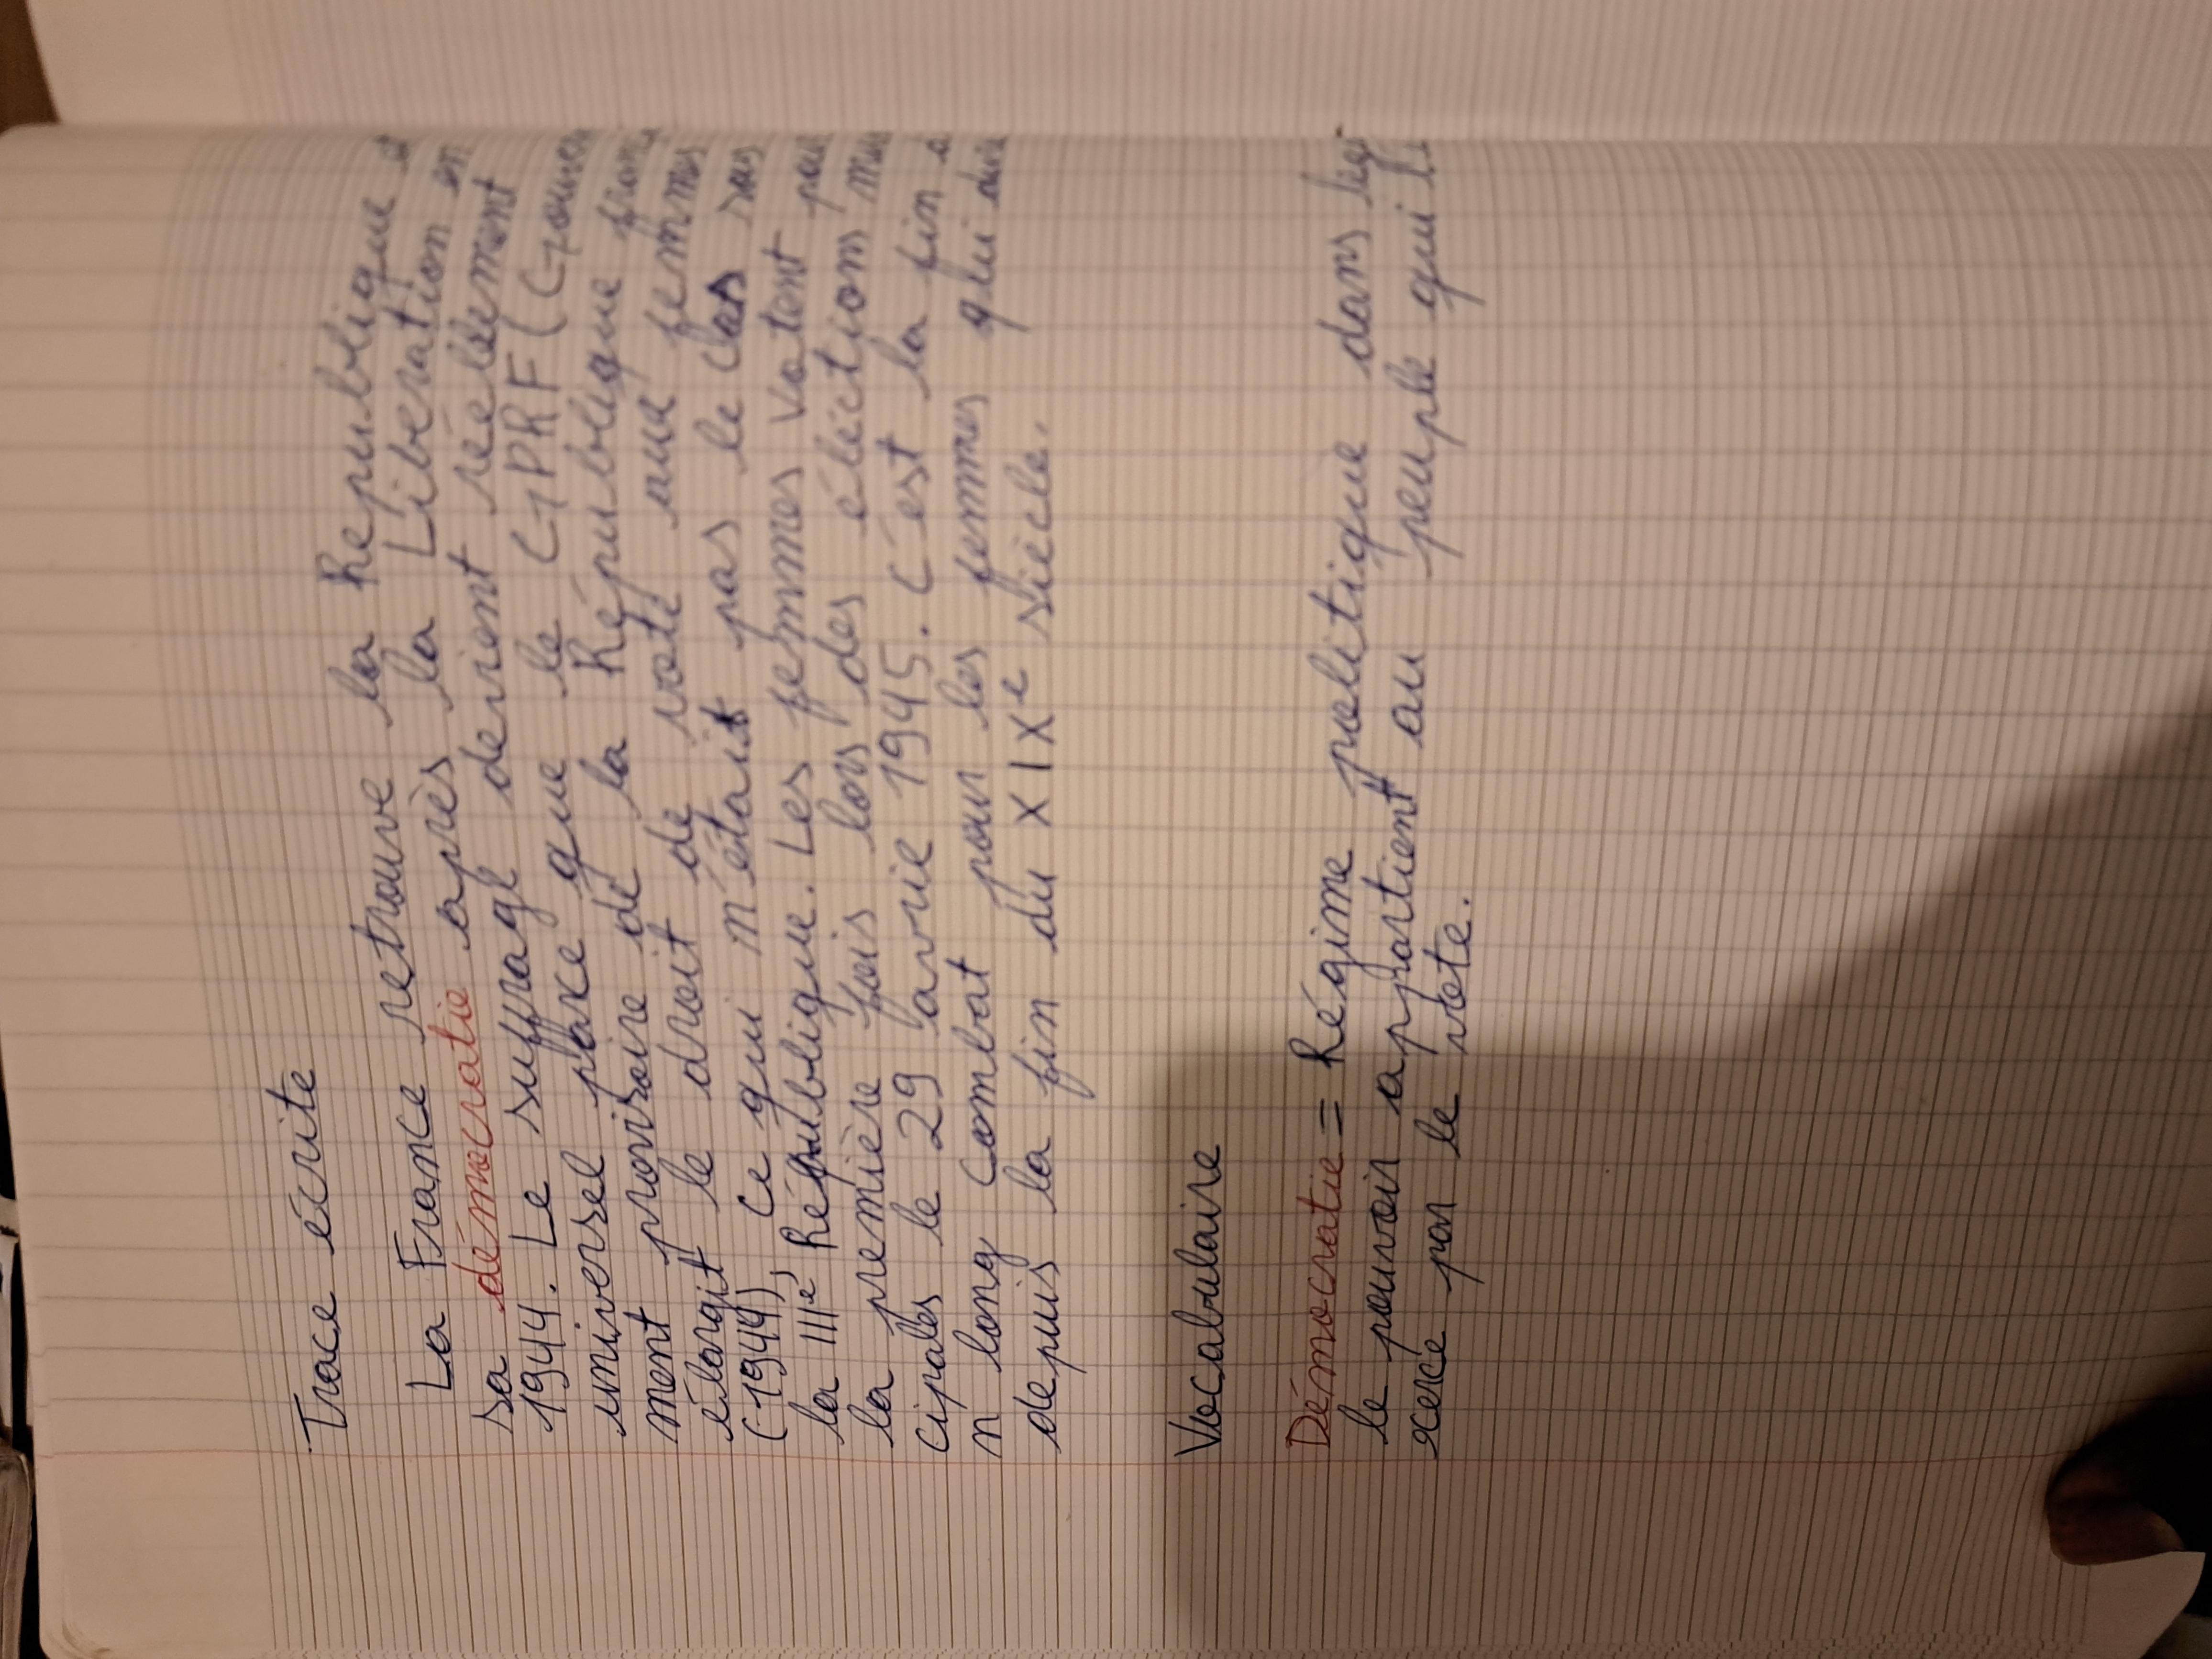 Trace écrite
La France retrouve la Republique et
sa démocratie après la Libération en
1944. Le suffrage devient réelement
universel parce que le GPRF (Gouver
ment provisoire de la République
élargit le droit de vote aux femmes
(-1944), ce qui n'était pas le cas sous
la IIIe République. Les femmes votent pour
la première fois lors des élections mu
cipales le 29 avrie 1945. C'est la fin d
n long combat pour les femmes qui dure
depuis la fin du XIXe siècle.
Vocabulaire
Démocratie = Régime politique dans leq
le pouvoir appartient au peuple qui l'
xerce par le vote.